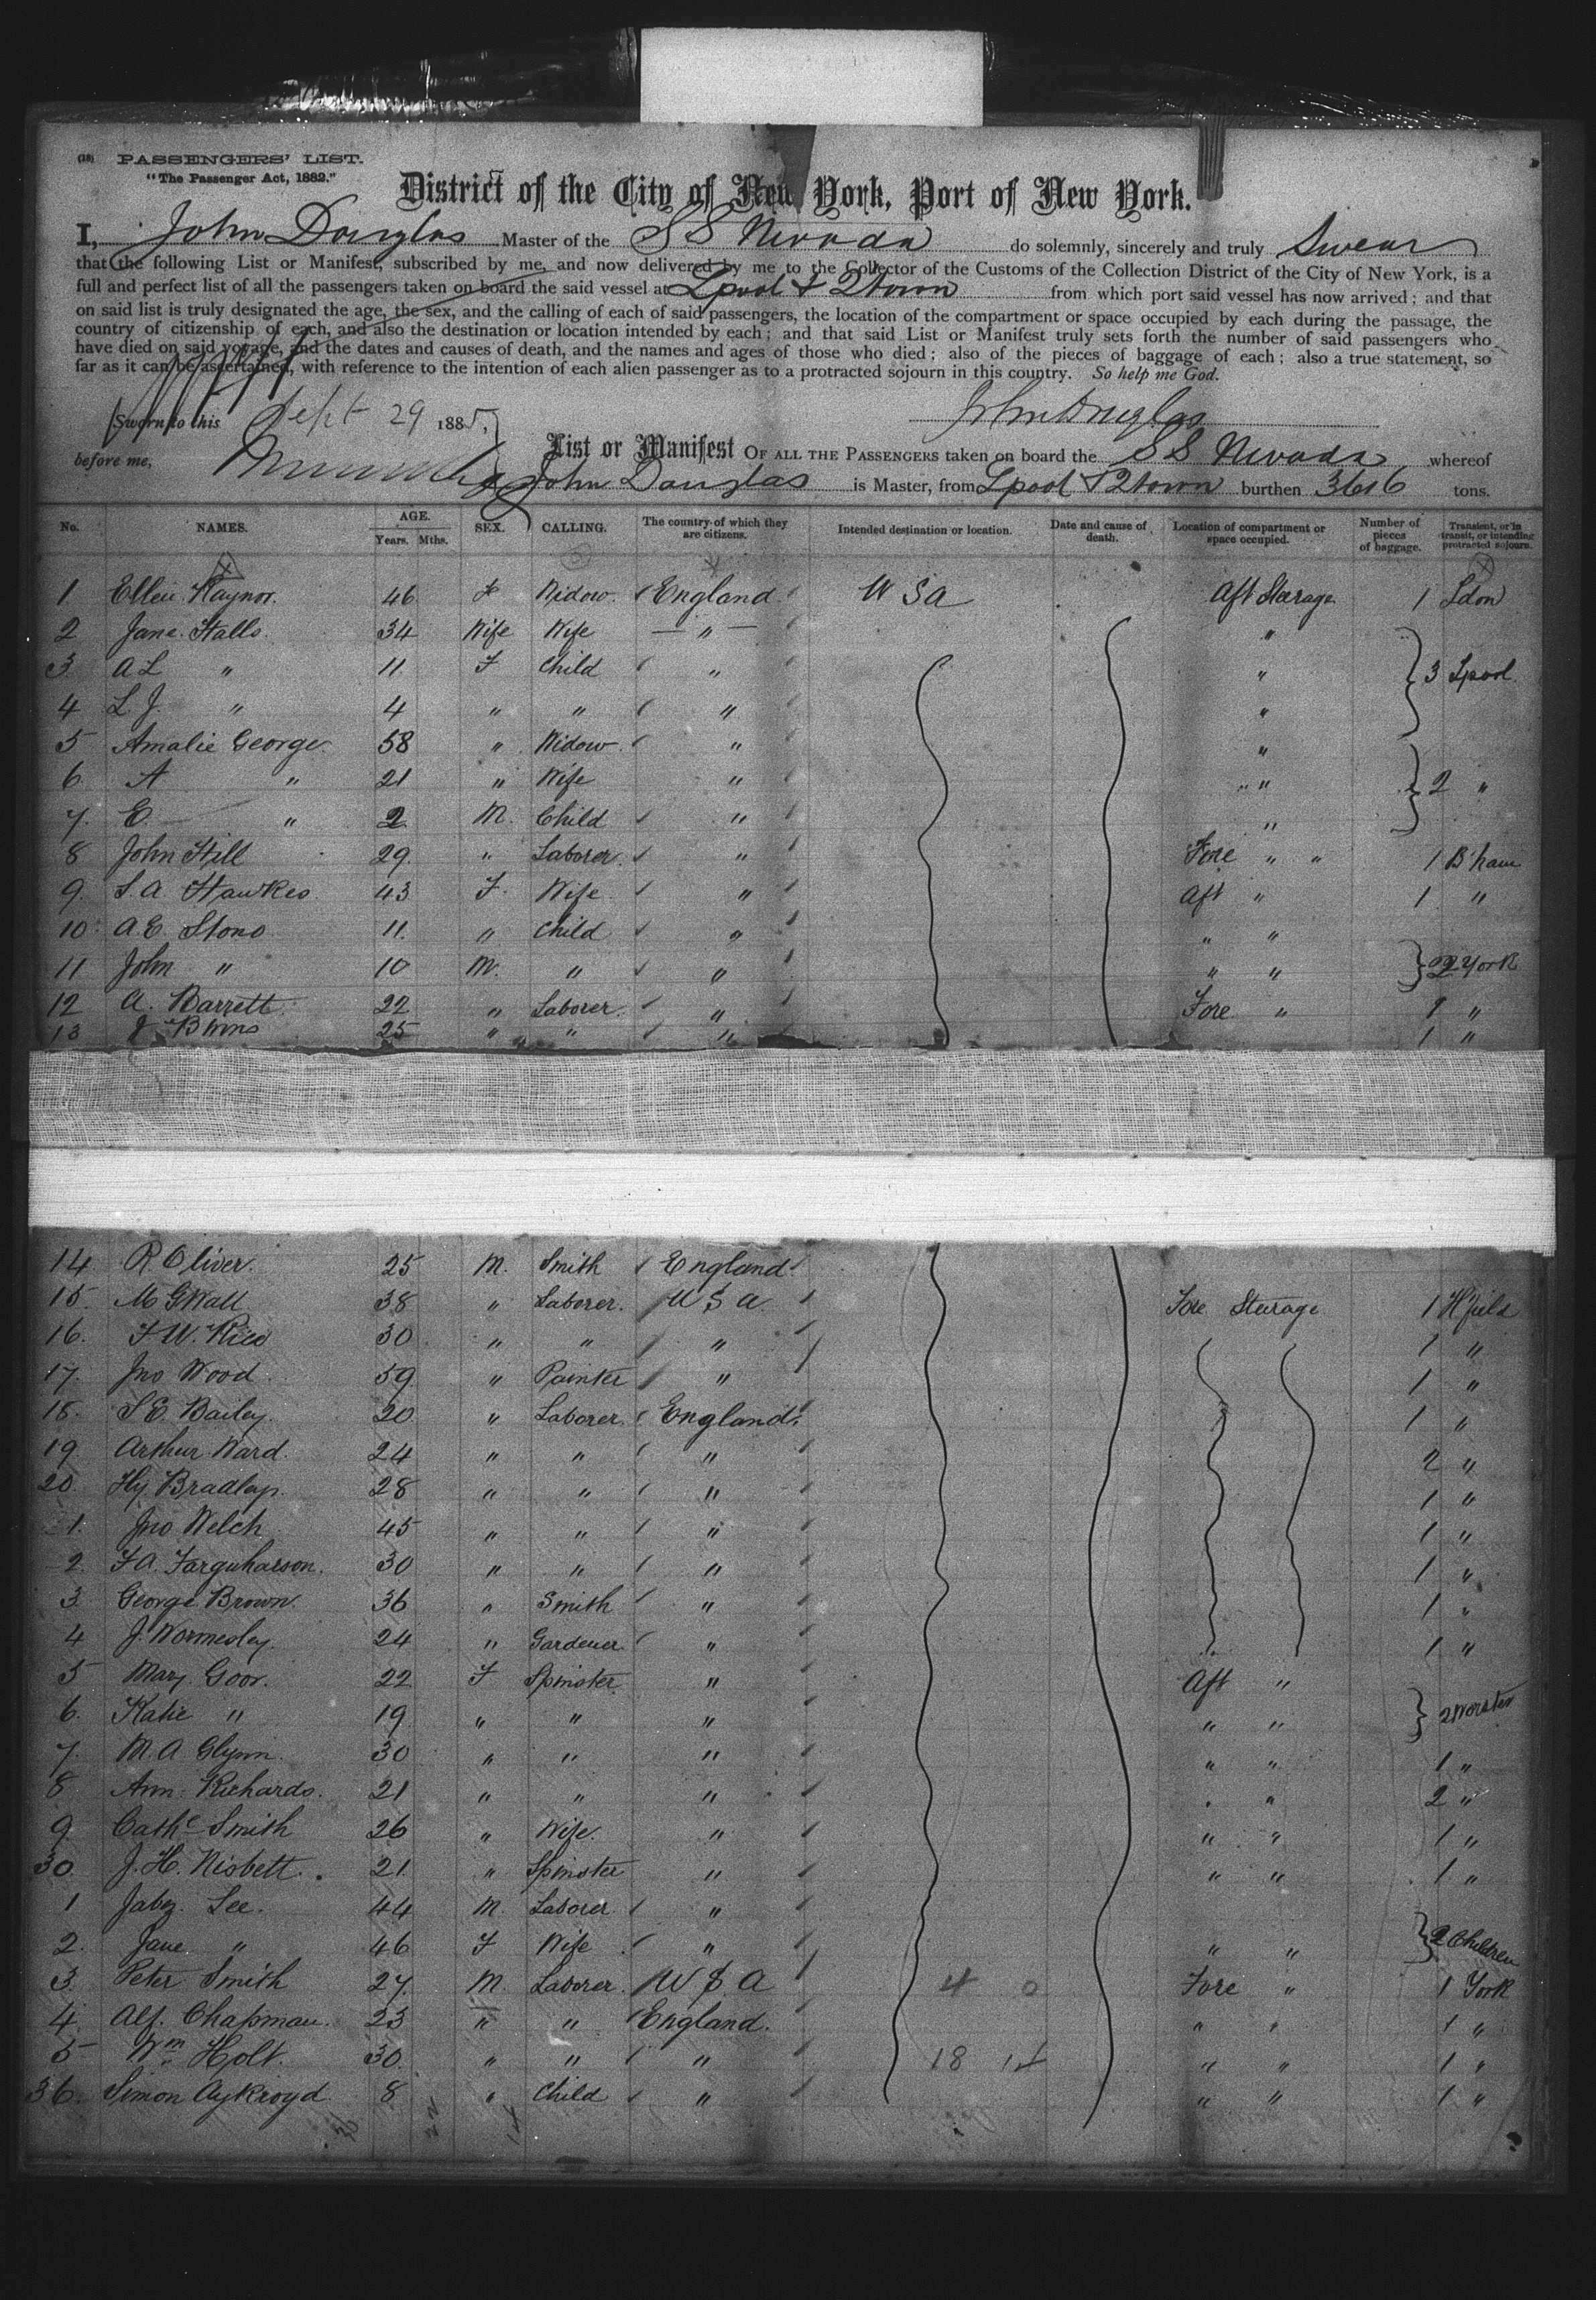 (18) PASSENGERS' LIST.
"The Passenger Act, 1882."
District of the City of New York, Port of New York.
I, John Douglas Master of the SS Nevada do solemnly, sincerely and truly Swear
that the following List or Manifest, subscribed by me, and now delivered by me to the Collector of the Customs of the Collection District of the City of New York, is a
full and perfect list of all the passengers taken on board the said vessel at Lpool & Qtown from which port said vessel has now arrived; and that
on said list is truly designated the age, the sex, and the calling of each of said passengers, the location of the compartment or space occupied by each during the passage, the
country of citizenship of each, and also the destination or location intended by each; and that said List or Manifest truly sets forth the number of said passengers who
have died on said voyage, and the dates and causes of death, and the names and ages of those who died; also of the pieces of baggage of each; also a true statement, so
far as it can be ascertained, with reference to the intention of each alien passenger as to a protracted sojourn in this country. So help me God.
Sworn to this Sept 29 1885, John Douglas
before me,
List or Manifest OF ALL THE PASSENGERS taken on board the SS Nevada whereof
John Douglas is Master, from Lpool & Qtown burthen 3616 tons.
No. NAMES. AGE. Years. Mths. SEX. CALLING. The country of which they are citizens. Intended destination or location. Date and cause of death. Location of compartment or space occupied. Number of pieces of baggage. Transient, or in transit, or intending protracted sojourn.
1 Ellen Raynor. 46 F Widow. England U S a Aft Steerage 1 Ldon
2 Jane Halls. 34 Wife Wife " "
3 A L " 11 F Child " " 3 Lpool
4 L J. " 4 " " " "
5 Amalie George 58 " Widow " "
6 A " 21 " Wife " " " 2 "
7. E. " 2 M. Child " "
8 John Hill 29 " Laborer " Fore " " 1 B'ham
9. S. A. Hawkes 43 F. Wife " Aft " 1 "
10 A. E. Stono 11. " Child " " "
11 John " 10 M. " " " " 2 York
12 A. Barrett 22 " Laborer. " Fore " 1 "
13 25 " " " 1 "
14 R Oliver. 25 M. Smith England
15. M GWall 38 " Laborer. U S A Fore Steerage 1 H'field
16. F W. Rice 30 " " " 1 "
17. Jno Wood 59 " Painter " 1 "
18. S E. Bailey. 20 " Laborer England 1 "
19. Arthur Ward. 24 " " " 2 "
20. Hy Bradley. 28 " " " 1 "
1. Jno Welch 45 " " " 1 "
2. F A. Farquharson. 30 " " " 1 "
3. George Brown. 36 " Smith " 1 "
4 J. Wormesley. 24 " Gardener " 1 "
5 Mary Goor. 22 F Spinster " Aft "
6. Katie " 19 " " " " " 2 Worster
7. M. A Glynn. 30 " " " " " 1 "
8 Ann Richards. 21 " " " " " 2 "
9. Cathe Smith 26 " Wife. " " " 1 "
30. J. H. Nisbett. 21 " Spinster " " " 1 "
1 Jabez Lee. 44 M. Laborer "
2. Jane " 46 F Wife " " " 2 Children
3. Peter Smith 27. M. Laborer. U S A 4 0 Fore " 1 York
4. Alf. Chapman. 23 " " England. " " 1 "
5 Wm Holt. 30 " " " 18 14 " " 1 "
36. Simon Aykroyd 8 " Child " " " 1 "